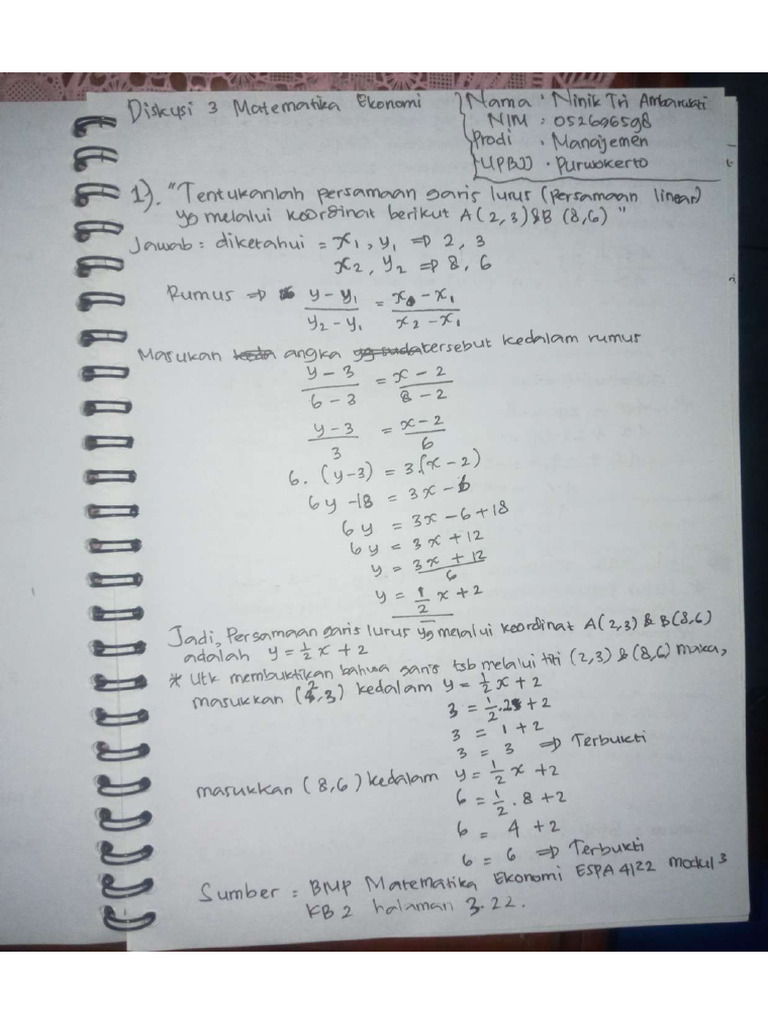 Diskusi 3 Matematika Ekonomi
Nama : Ninik Tri Ambarwati
NIM : 052696598
Prodi : Manajemen
UPBJJ : Purwokerto
1). "Tentukanlah persamaan garis lurus (persamaan linear)
yg melalui koordinat berikut A(2,3) & B (8,6) "
Jawab : diketahui = x₁, y₁ ⇒ 2, 3
x₂, y₂ ⇒ 8, 6
Rumus ⇒ y - y₁ / y₂ - y₁ = x - x₁ / x₂ - x₁
Masukan angka tersebut kedalam rumus
y - 3 / 6 - 3 = x - 2 / 8 - 2
y - 3 / 3 = x - 2 / 6
6. (y-3) = 3.(x - 2)
6y - 18 = 3x - 6
6y = 3x - 6 + 18
6y = 3x + 12
y = 3x + 12 / 6
y = 1/2 x + 2
Jadi, Persamaan garis lurus yg melalui koordinat A(2,3) & B(8,6)
adalah y = 1/2 x + 2
* Utk membuktikan bahwa garis tsb melalui titi (2,3) & (8,6) maka,
masukkan (2,3) kedalam y = 1/2 x + 2
3 = 1/2 . 2 + 2
3 = 1 + 2
3 = 3 ⇒ Terbukti
masukkan (8,6) kedalam y = 1/2 x + 2
6 = 1/2 . 8 + 2
6 = 4 + 2
6 = 6 ⇒ Terbukti
Sumber = BMP Matematika Ekonomi ESPA 4122 modul 3
KB 2 halaman 3.22.